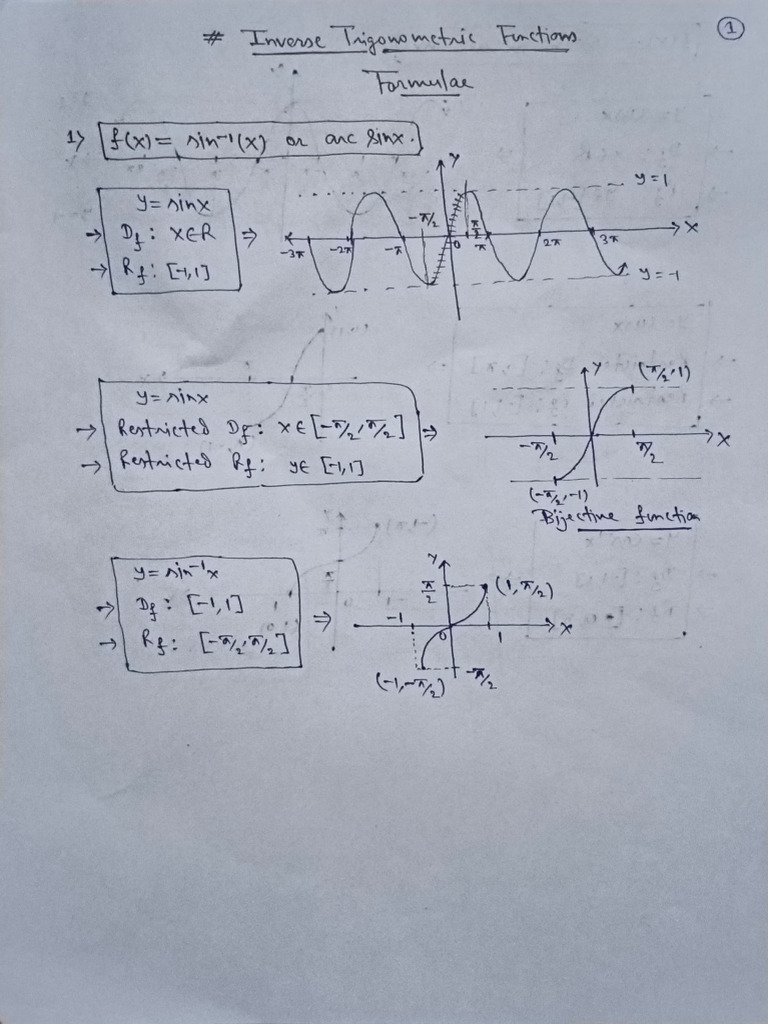 ①
# Inverse Trigonometric Functions
Formulae
1) f(x) = sin⁻¹(x) or arc sinx.
y = sinx
→ Df : x∈R ⇒
→ Rf : [-1,1]
Y
y = 1
-π/2
π/2
-3π -2π -π 0 π 2π 3π X
y = -1
y = sinx
→ Restricted Df : x∈[-π/2, π/2] ⇒
→ Restricted Rf : y∈ [-1,1]
Y (π/2, 1)
-π/2 π/2 X
(-π/2, -1)
Bijective function
y = sin⁻¹x
→ Df : [-1,1]
→ Rf : [-π/2, π/2] ⇒
Y
π/2 (1, π/2)
-1 0 1 X
(-1, -π/2) -π/2